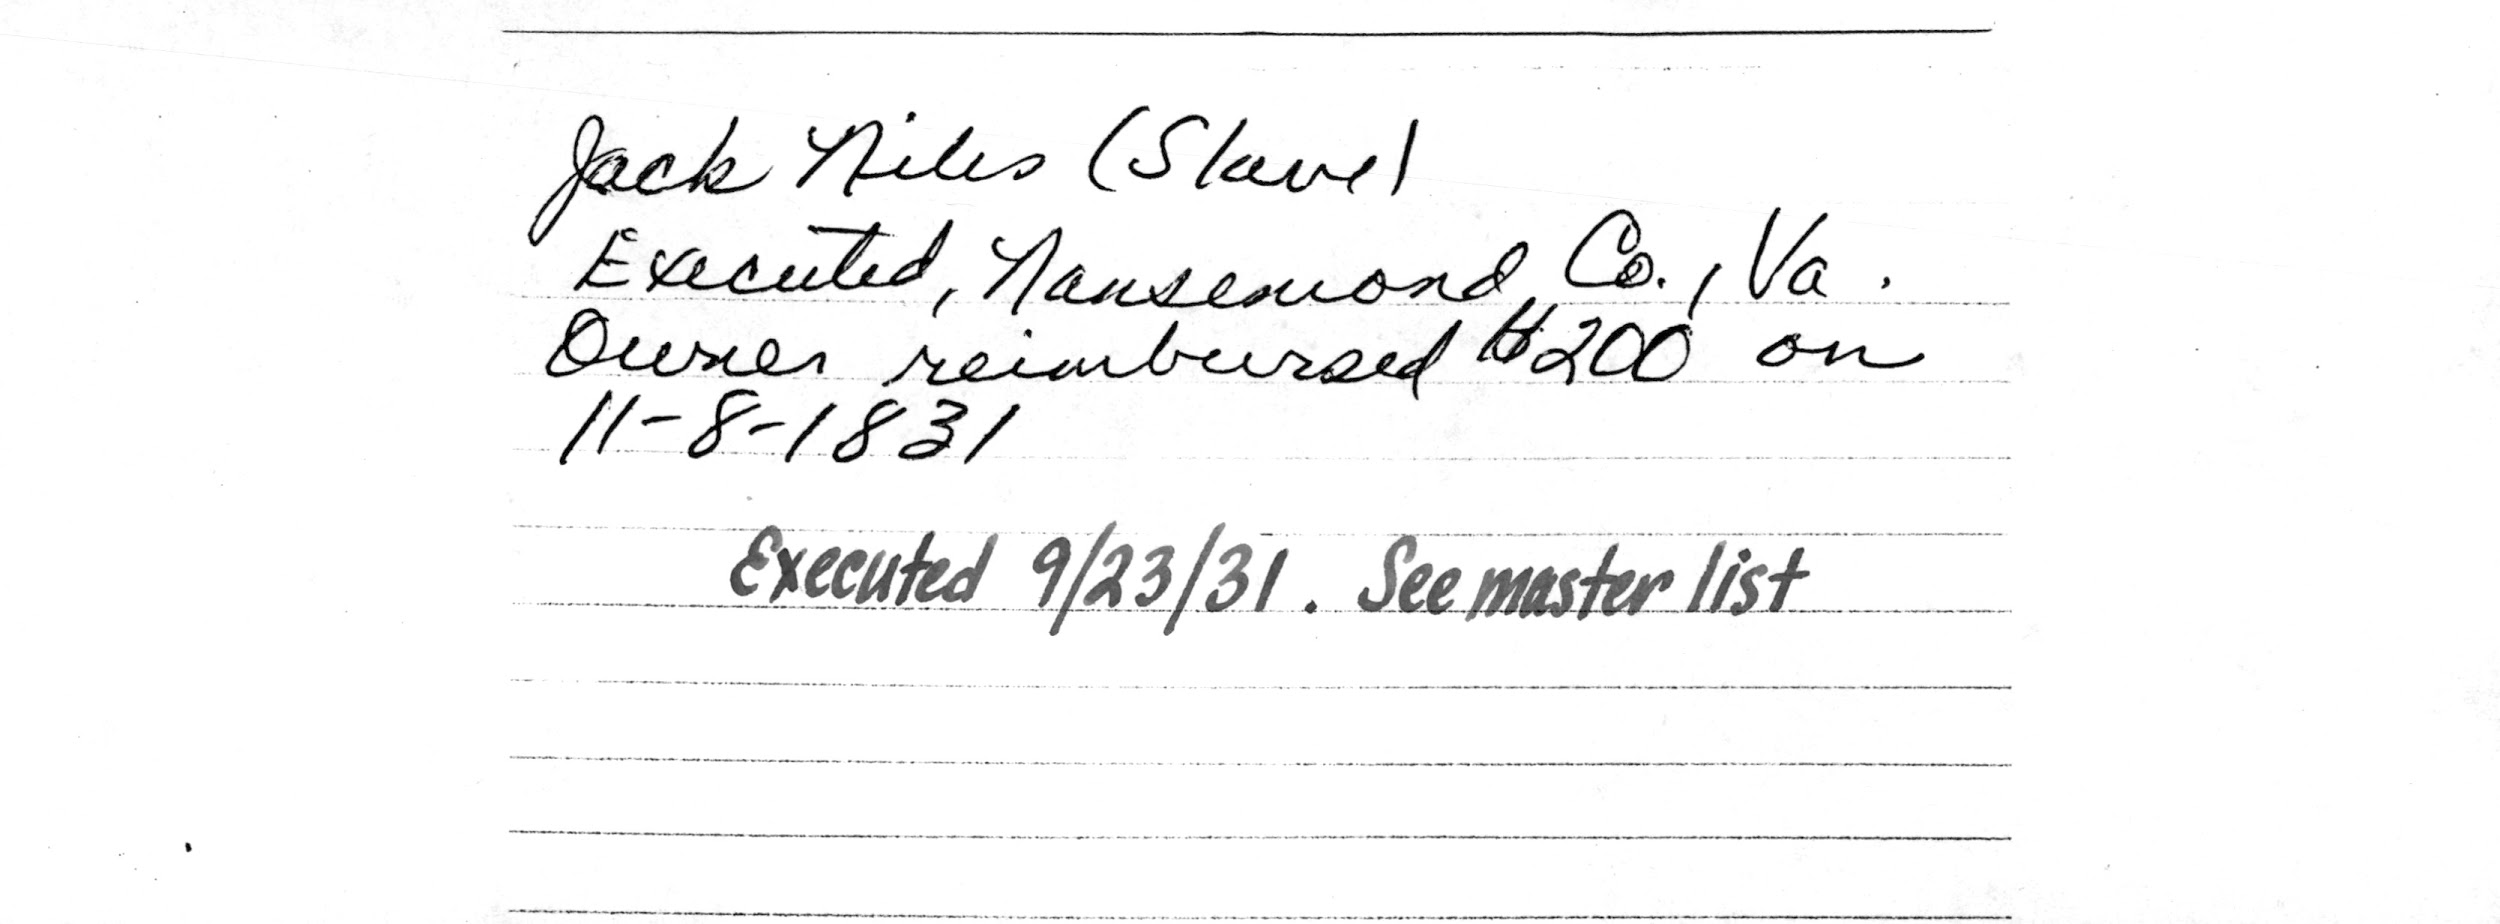 Jack Niles (Slave)
Executed, Nansemond Co., Va.
Owner reimbursed $200 on
11-8-1831
Executed 9/23/31. See master list